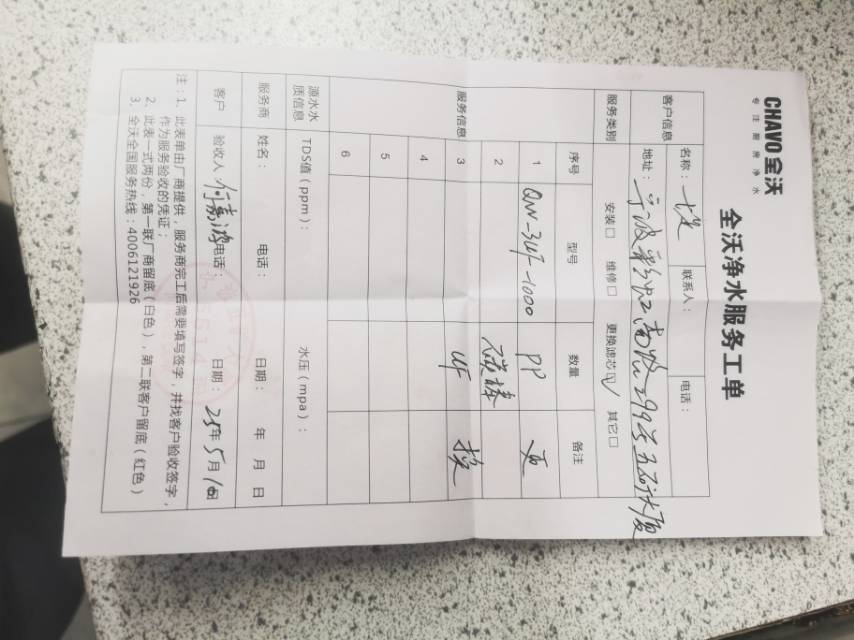 CHAVO全沃
专注厨房净水
全沃净水服务工单
客户信息 名称： 联系人： 电话：
地址：宁波彩虹南路299号
服务类别 安装□ 维修□ 更换滤芯☑ 其它□
服务信息 序号 型号 数量 备注
1 QW-3UF-1000 PP 更
2 碳棒
3 UF 换
4
5
6
源水水质信息 TDS值（ppm）： 水压（mpa）：
服务商 姓名： 电话： 日期： 年 月 日
客户 验收人 电话： 日期：25年5月10日
注：1、此表单由厂商提供，服务商完工后需要填写签字，并找客户验收签字，
作为服务验收的凭证；
2、此表一式两份，第一联厂商留底（白色），第二联客户留底（红色）
3、全沃全国服务热线：4006121926